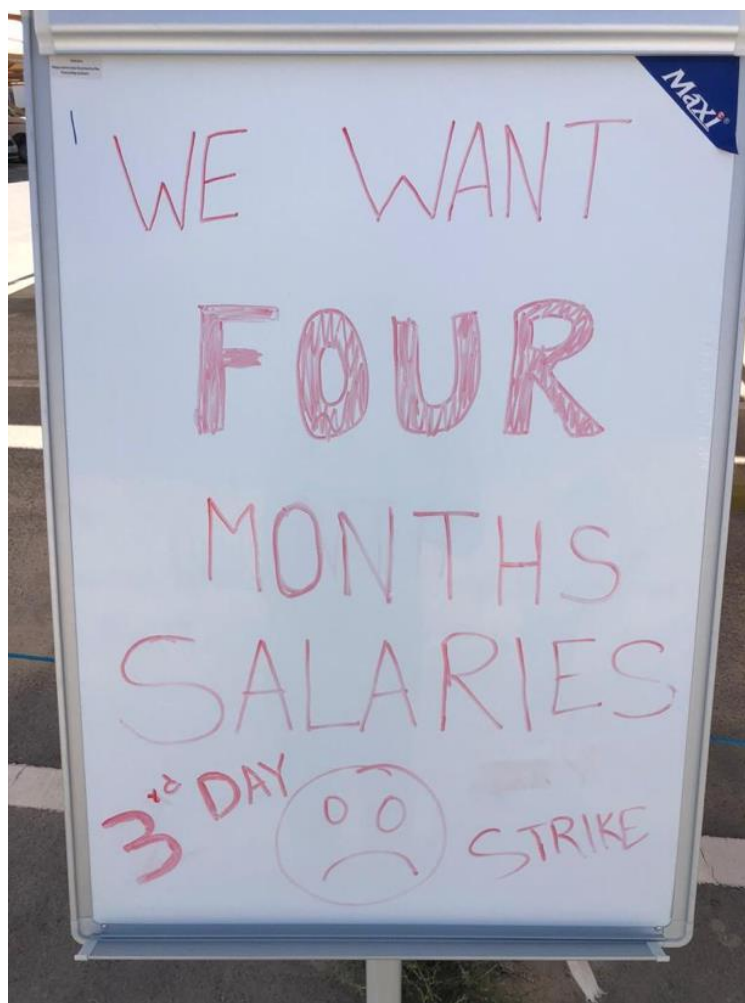 Maxi®
WE WANT
FOUR
MONTHS
SALARIES
3rd DAY
STRIKE